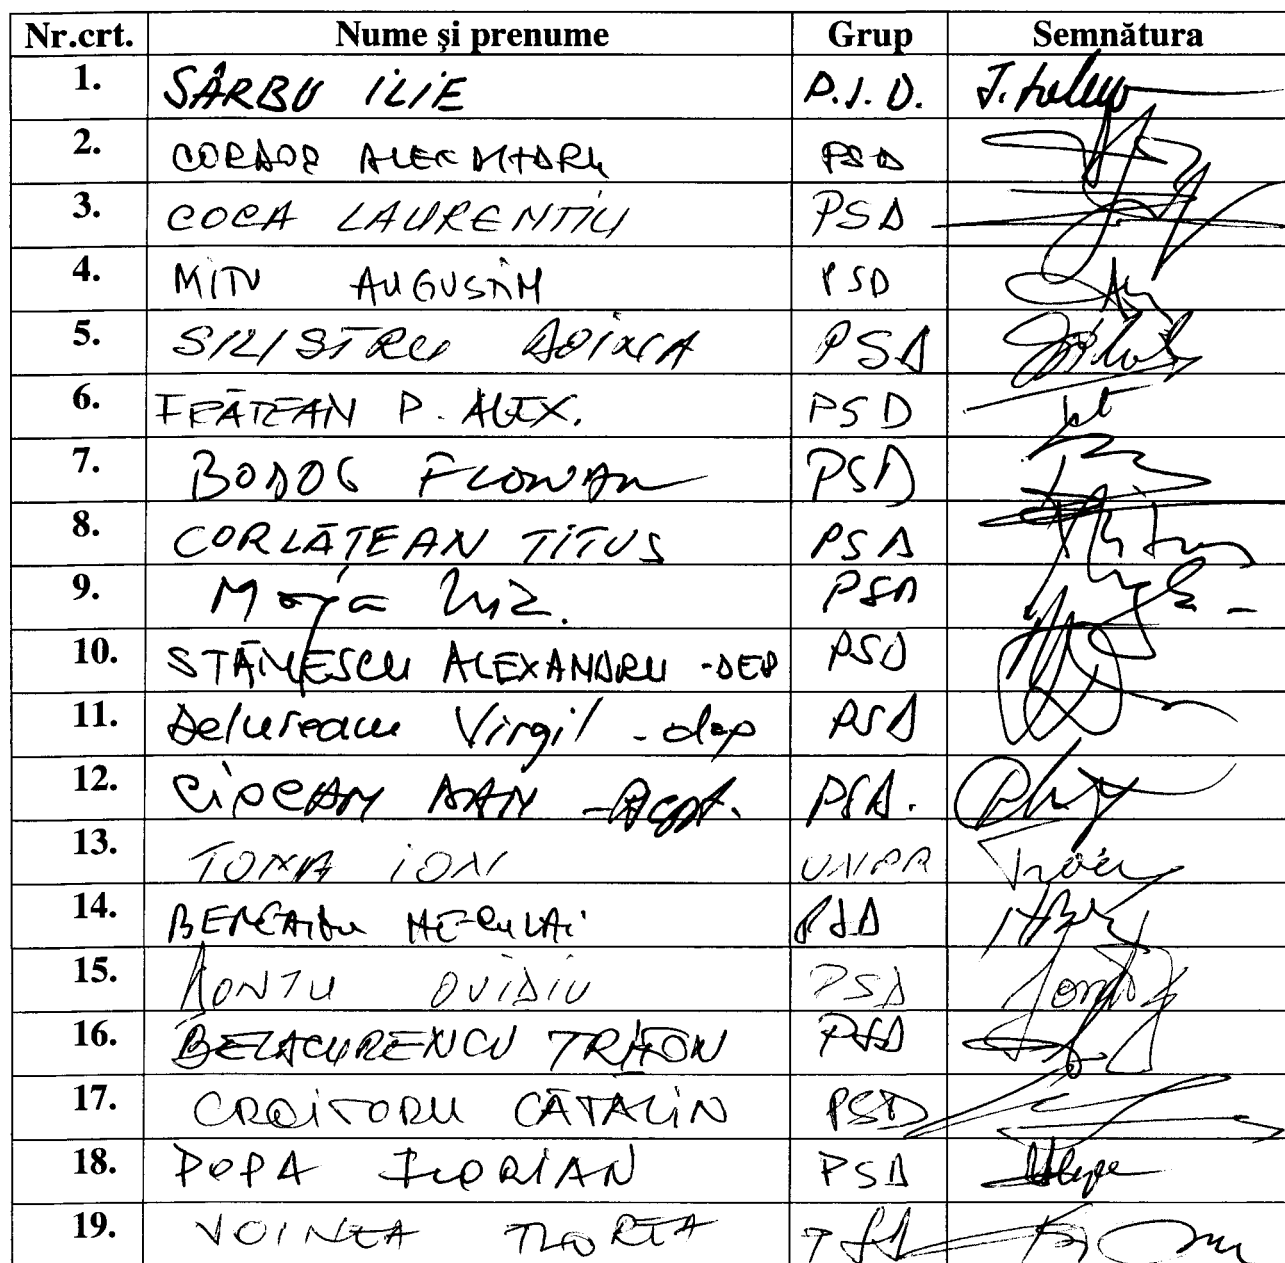 Nr.crt. Nume şi prenume Grup Semnătura
1. SÂRBU ILIE P.S.D.
2. CORDOȘ ALEXANDRU PSD
3. COCA LAURENTIU PSD
4. MITU AUGUSTIN PSD
5. SILISTRU DOINA PSD
6. FRĂTEAN P. ALEX. PSD
7. BODOG FLORIAN PSD
8. CORLĂŢEAN TITUS PSD
9. PSD
10. STĂNESCU ALEXANDRU - DEP PSD
11. Delureanu Virgil - dep PSD
12. CIOCAN DAN - Dept. PSD.
13. TOMA ION UNPR
14. PSD
15. DONTU OVIDIU PSD
16. BELACURENCU TRIFON PSD
17. CROITORU CĂTĂLIN PSD
18. POPA FLORIAN PSD
19. VOINEA FLOREA PSD